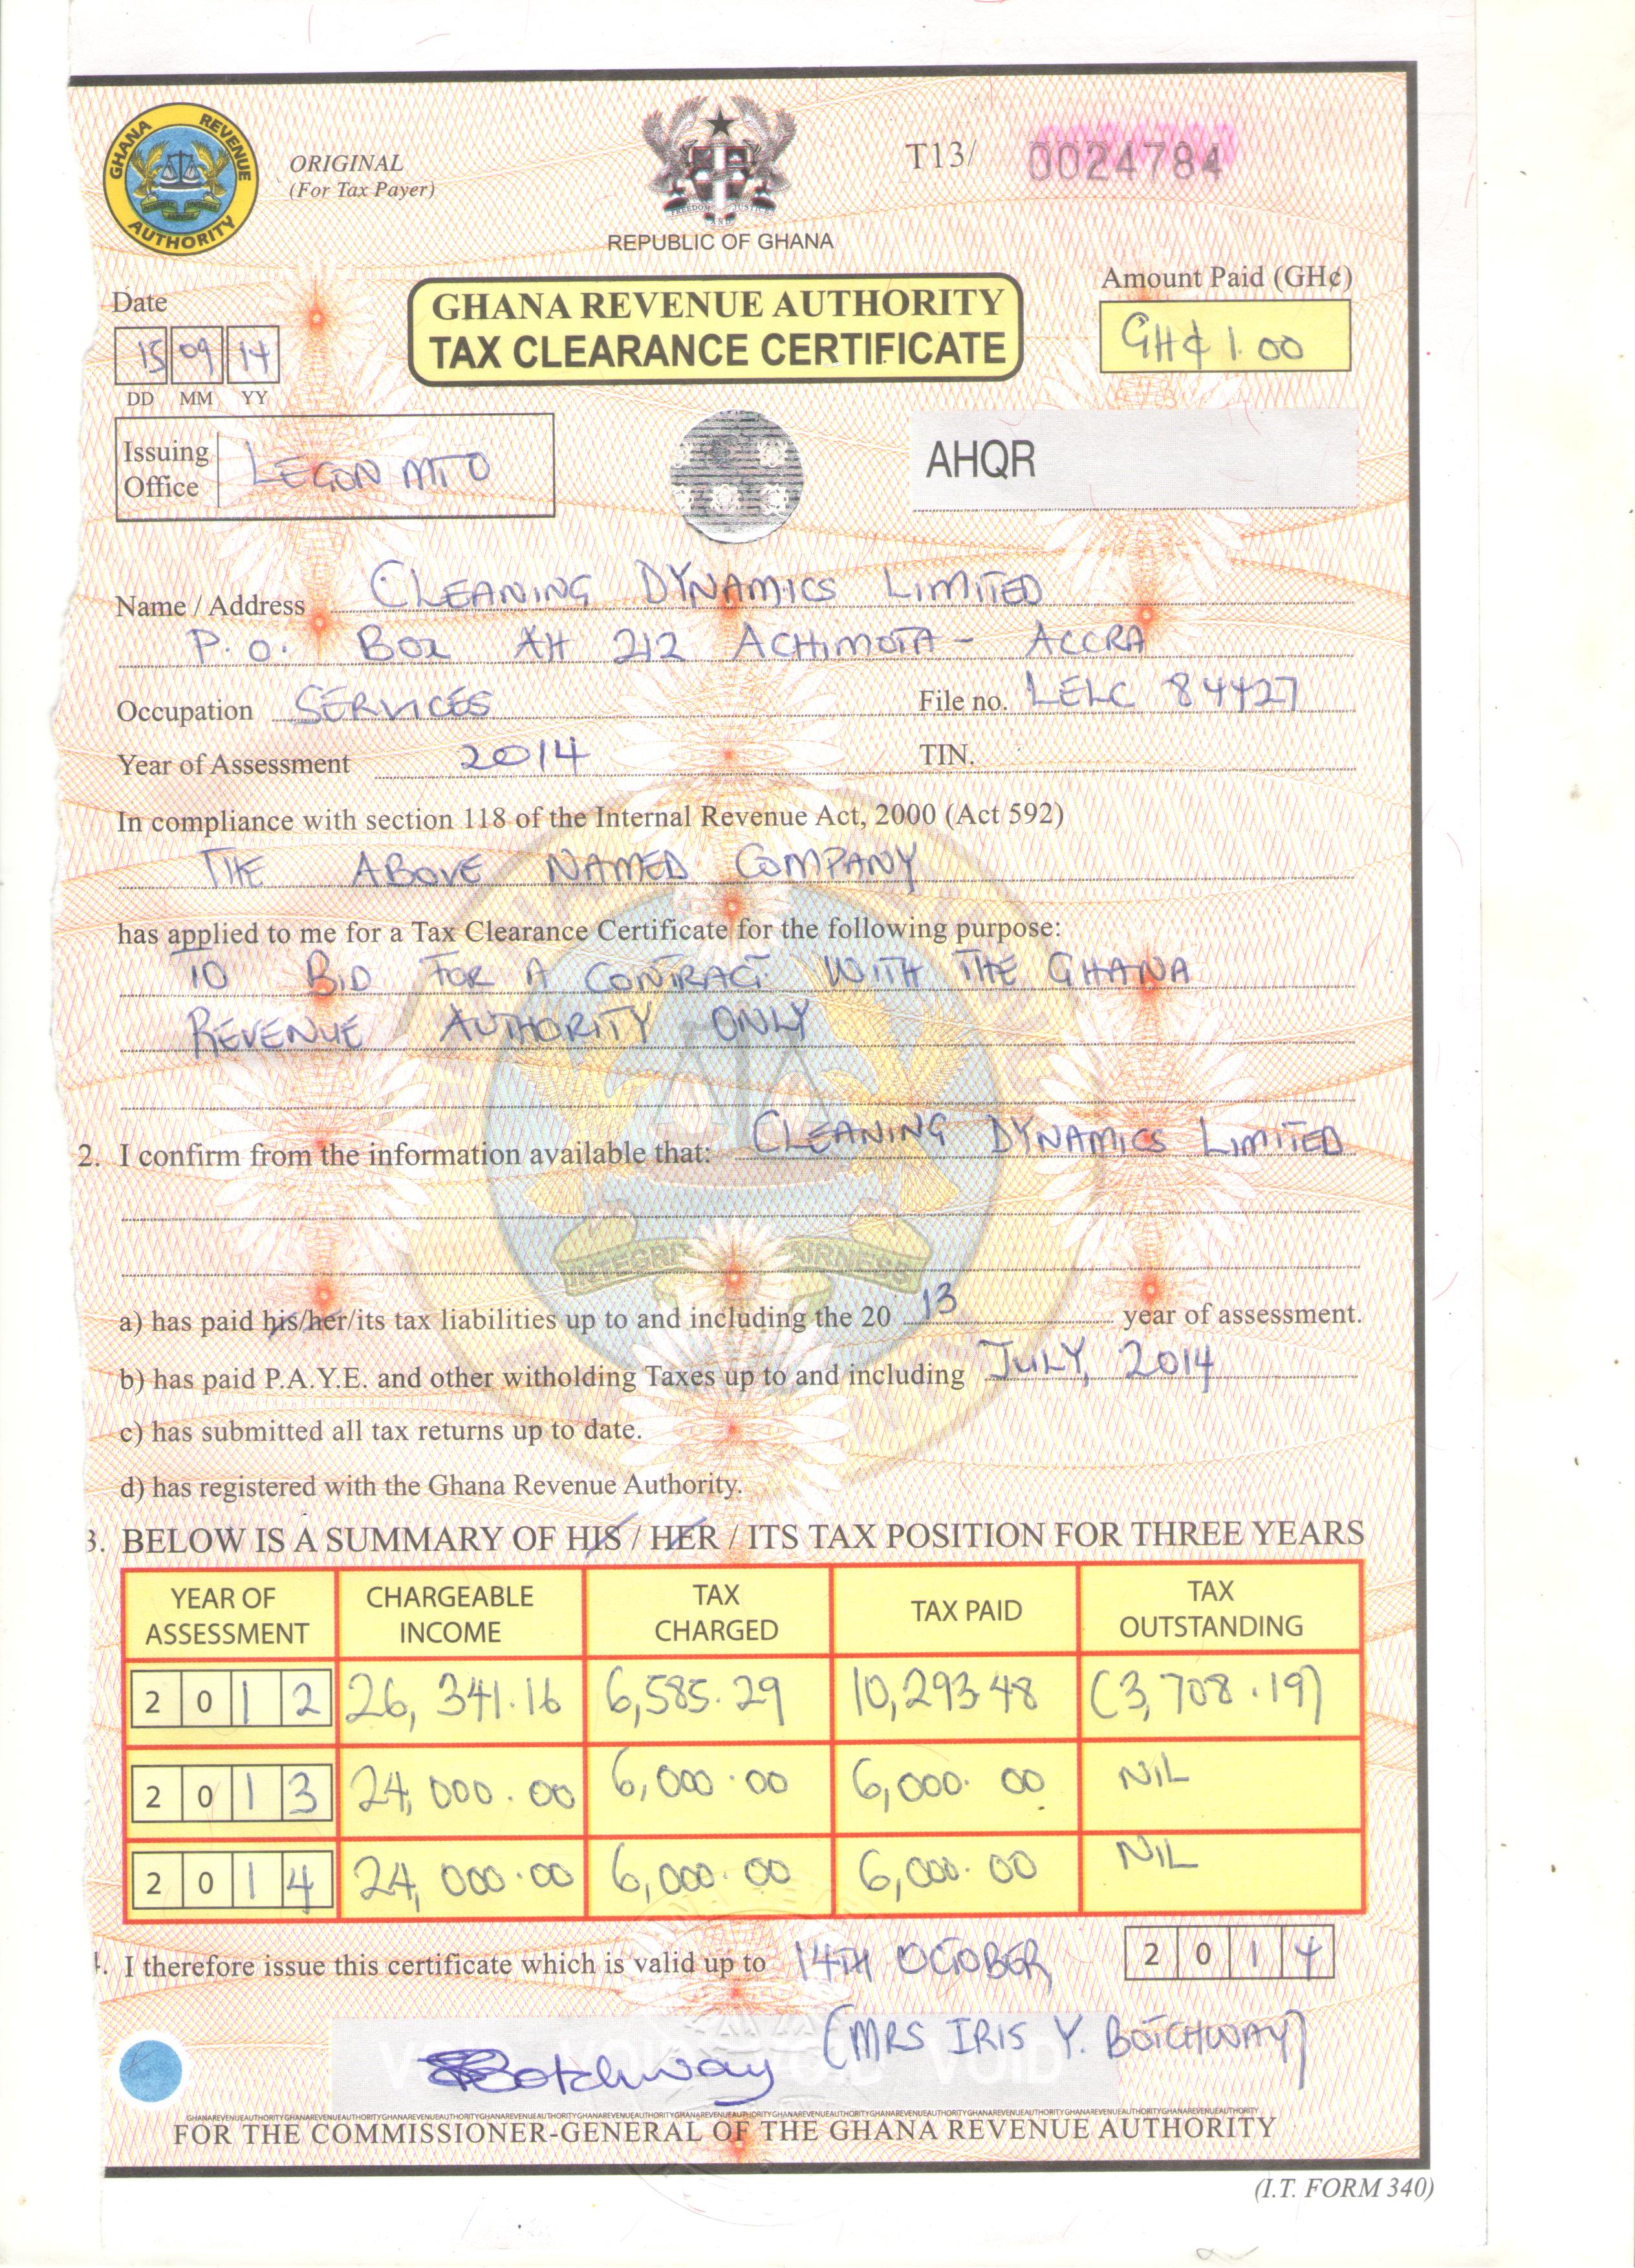 GHANA REVENUE AUTHORITY
ORIGINAL
(For Tax Payer)
FREEDOM AND JUSTICE
REPUBLIC OF GHANA
T13/ 0024784
Date
15 09 14
DD MM YY
GHANA REVENUE AUTHORITY
TAX CLEARANCE CERTIFICATE
Amount Paid (GH¢)
GH¢ 1.00
Issuing Office LEGON MTO
AHQR
Name / Address CLEANING DYNAMICS LIMITED
P.O. BOX AH 212 ACHIMOTA - ACCRA
Occupation SERVICES File no. LELC 84427
Year of Assessment 2014 TIN.
In compliance with section 118 of the Internal Revenue Act, 2000 (Act 592)
THE ABOVE NAMED COMPANY
has applied to me for a Tax Clearance Certificate for the following purpose:
TO BID FOR A CONTRACT WITH THE GHANA
REVENUE AUTHORITY ONLY
2. I confirm from the information available that: CLEANING DYNAMICS LIMITED
a) has paid his/her/its tax liabilities up to and including the 20 13 year of assessment.
b) has paid P.A.Y.E. and other witholding Taxes up to and including JULY, 2014
c) has submitted all tax returns up to date.
d) has registered with the Ghana Revenue Authority.
3. BELOW IS A SUMMARY OF HIS / HER / ITS TAX POSITION FOR THREE YEARS
YEAR OF ASSESSMENT CHARGEABLE INCOME TAX CHARGED TAX PAID TAX OUTSTANDING
2012 26,341.16 6,585.29 10,293.48 (3,708.19)
2013 24,000.00 6,000.00 6,000.00 NIL
2014 24,000.00 6,000.00 6,000.00 NIL
4. I therefore issue this certificate which is valid up to 14TH OCTOBER, 2014
(MRS IRIS Y. BOTCHWAY)
VOID
Botchway
FOR THE COMMISSIONER-GENERAL OF THE GHANA REVENUE AUTHORITY
(I.T. FORM 340)